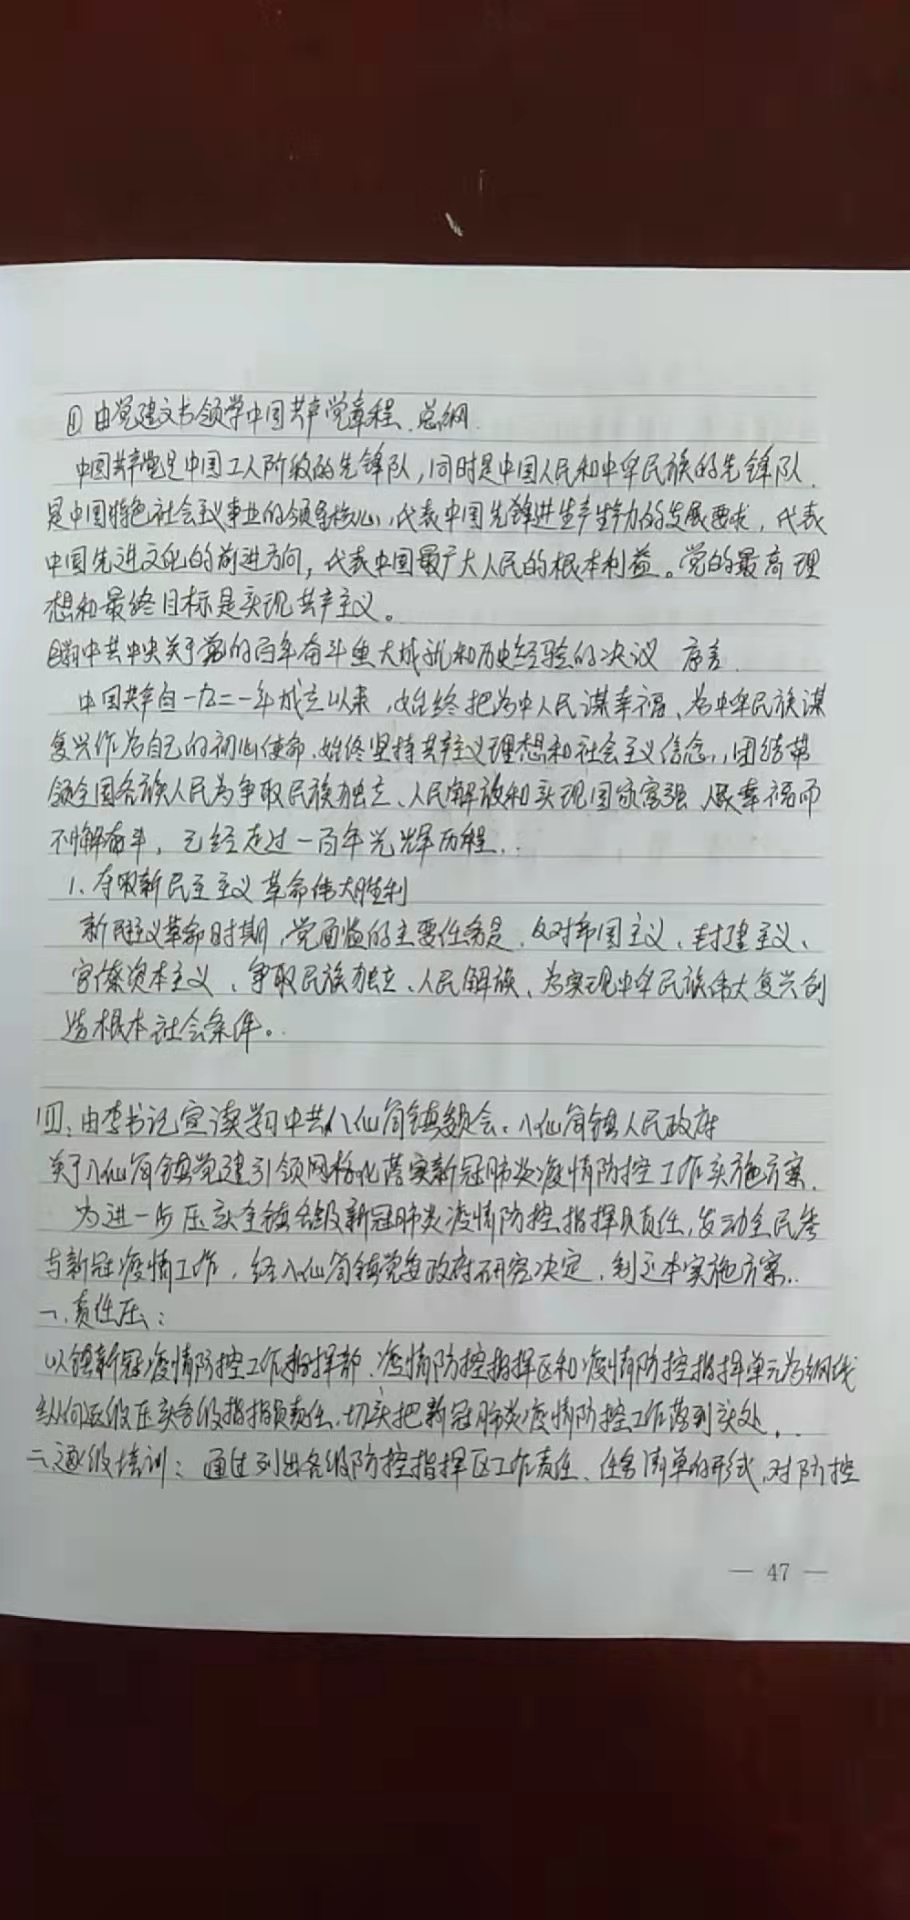 ①由党建文书领学中国共产党章程、总纲.
中国共产党是中国工人阶级的先锋队,同时是中国人民和中华民族的先锋队.
是中国特色社会主义事业的领导核心,代表中国先锋进生产生产力的发展要求,代表
中国先进文化的前进方向,代表中国最广大人民的根本利益。党的最高理
想和最终目标是实现共产主义。
②学习中共中央关于党的百年奋斗重大成就和历史经验的决议 序言.
中国共产自一九二一年成立以来,始终把为中人民谋幸福、为中华民族谋
复兴作为自己的初心使命.始终坚持共产主义理想和社会主义信念,,团结带
领全国各族人民为争取民族独立、人民解放和实现国家富强、人民幸福而
不懈奋斗,已经走过一百年光辉历程..
1、夺取新民主主义革命伟大胜利
新民主主义革命时期,党面临的主要任务是.反对帝国主义、封建主义、
官僚资本主义、争取民族独立、人民解放、为实现中华民族伟大复兴创
造根本社会条件。.
四、由李书记宣读学习中共八仙筒镇委员会、八仙筒镇人民政府
关于八仙筒镇党建引领网格化落实新冠肺炎疫情防控工作实施方案.
为进一步压实全镇各级新冠肺炎疫情防控指挥员责任,发动全民参
与新冠疫情工作,经八仙筒镇党委政府研究决定,制定本实施方案..
一.责任压:
以镇新冠疫情防控工作指挥部、疫情防控指挥区和疫情防控指挥单元为纲线
纵向逐级压实各级指指员责任.切实把新冠肺炎疫情防控工作落到实处..
二、逐级培训:通过列出各级防控指挥区工作责任、任务清单的形式,对防控
— 47 —